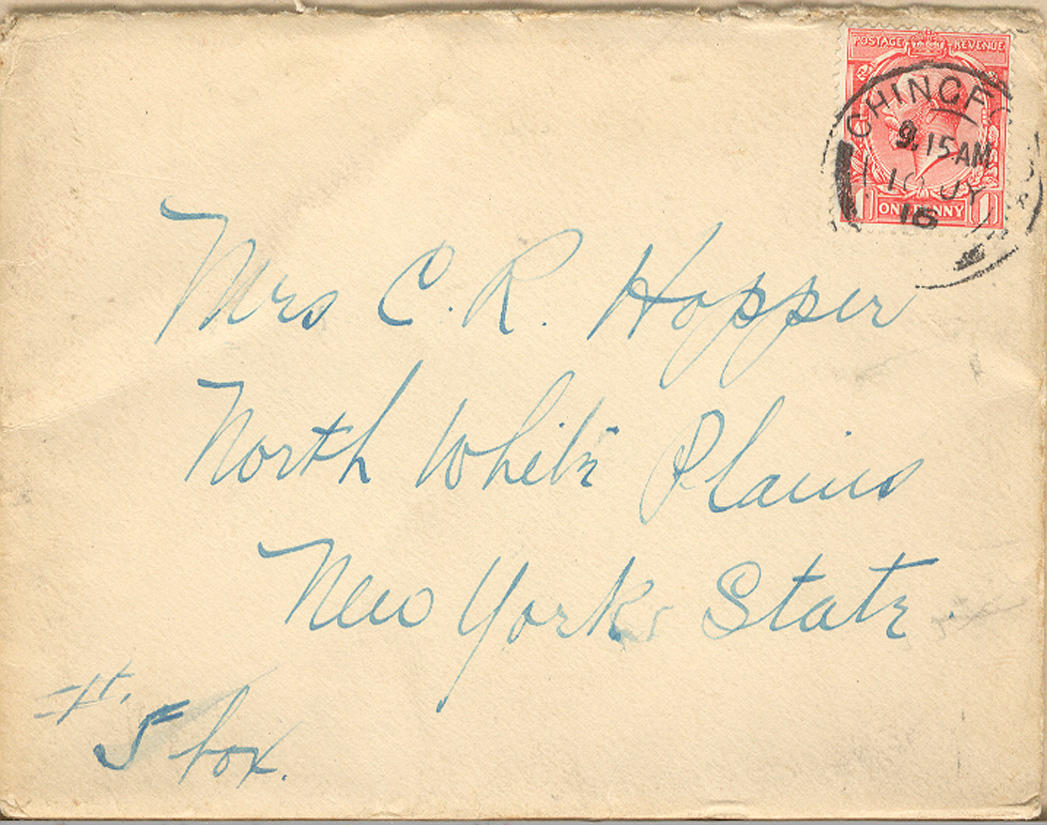 POSTAGE REVENUE
CHINGF
9.15 AM
10 JY
16
ONE PENNY
Mrs C. R. Hopper
North White Plains
New York State
5 box.